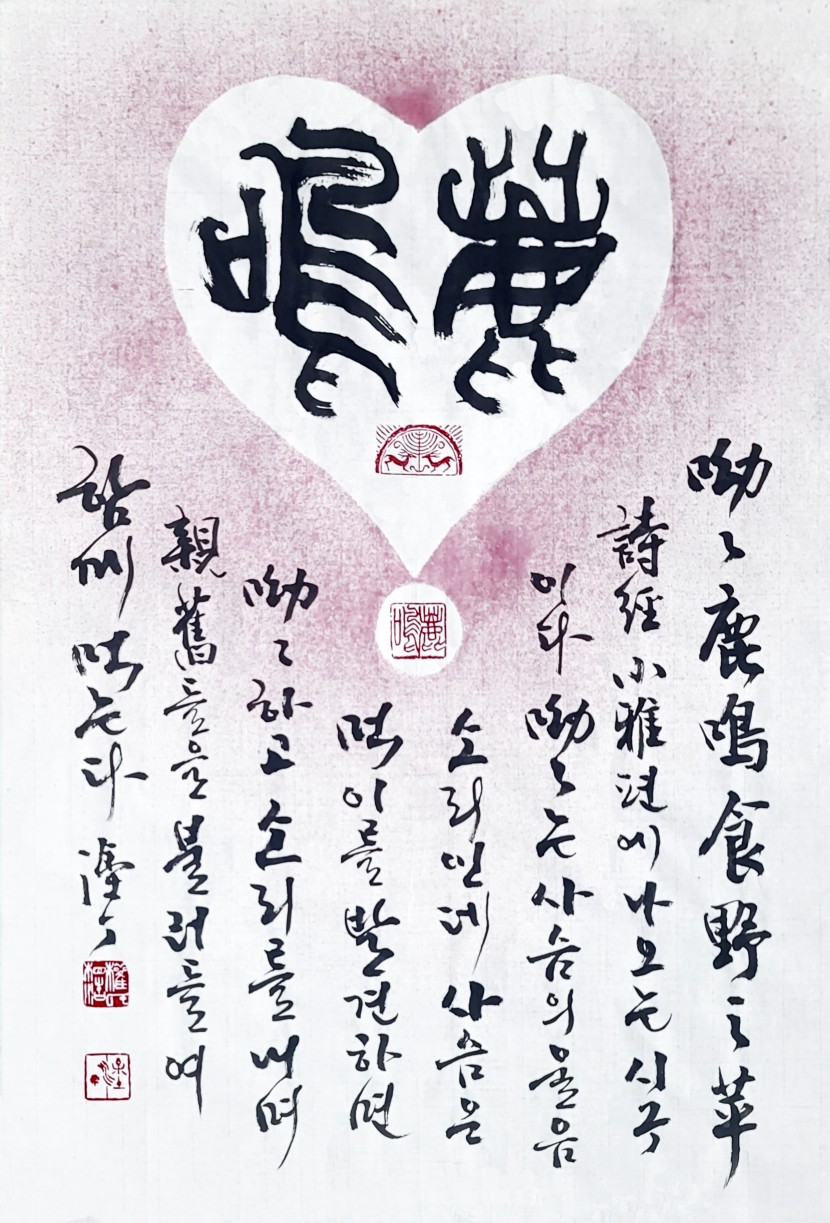 鹿鳴
呦〻鹿鳴食野之苹
詩經小雅편에 나오는 시구
이다 呦〻는 사슴의 울음
소리인데 사슴은
먹이를 발견하면
呦〻하고 소리를 내며
親舊들을 불러들여
함께 먹는다
鹿鳴